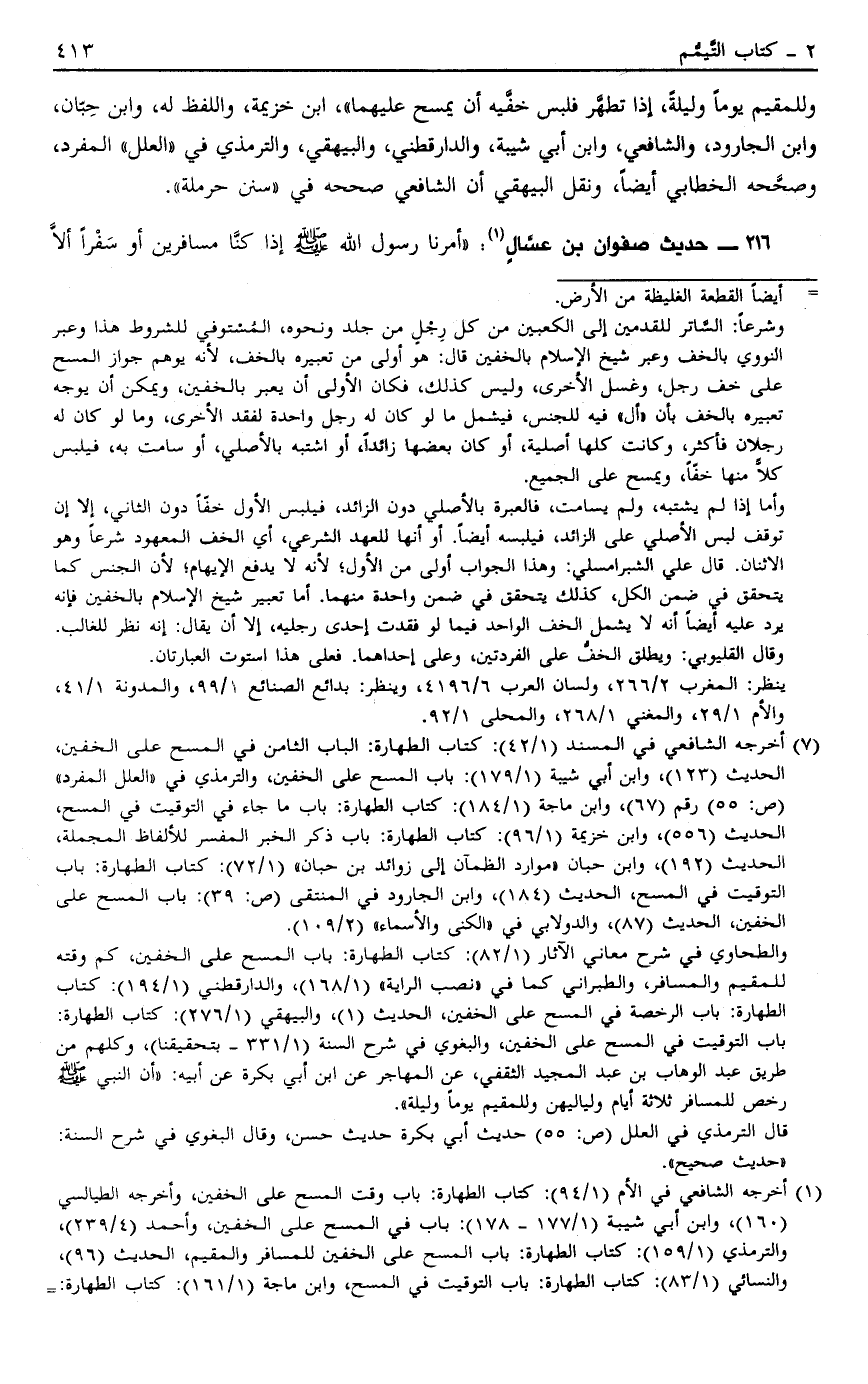 ٢ - كتاب التَّيمُّم ٤١٣
وللمقيم يوماً وليلةً، إذا تطهَّر فلبس خفَّيه أن يمسح عليهما»، ابن خزيمة، واللفظ له، وابن حِبّان،
وابن الجارود، والشافعي، وابن أبي شيبة، والدارقطني، والبيهقي، والترمذي في «العلل» المفرد،
وصحَّحه الخطابي أيضاً، ونقل البيهقي أن الشافعي صححه في «سنن حرملة».
٢١٦ - حديث صفوان بن عسَّالٍ(١): «أمرنا رسول الله ﷺ إذا كنَّا مسافرين أو سَفْراً ألاَّ
= أيضاً القطعة الغليظة من الأرض.
وشرعاً: السَّاتر للقدمين إلى الكعبين من كل رِجْلٍ من جلد ونحوه، المُسْتوفي للشروط هذا وعبر
النووي بالخف وعبر شيخ الإسلام بالخفين قال: هو أولى من تعبيره بالخف، لأنه يوهم جواز المسح
على خف رجل، وغسل الأخرى، وليس كذلك، فكان الأولى أن يعبر بالخفين، ويمكن أن يوجه
تعبيره بالخف بأن «أل» فيه للجنس، فيشمل ما لو كان له رجل واحدة لفقد الأخرى، وما لو كان له
رجلان فأكثر، وكانت كلها أصلية، أو كان بعضها زائداً، أو اشتبه بالأصلي، أو سامت به، فيلبس
كلاًّ منها خفّاً، ويمسح على الجميع.
وأما إذا لم يشتبه، ولم يسامت، فالعبرة بالأصلي دون الزائد، فيلبس الأول خفّاً دون الثاني، إلا إن
توقف لبس الأصلي على الزائد، فيلبسه أيضاً. أو أنها للعهد الشرعي، أي الخف المعهود شرعاً وهو
الاثنان. قال علي الشبرامسلي: وهذا الجواب أولى من الأول؛ لأنه لا يدفع الإيهام؛ لأن الجنس كما
يتحقق في ضمن الكل، كذلك يتحقق في ضمن واحدة منهما. أما تعبير شيخ الإسلام بالخفين فإنه
يرد عليه أيضاً أنه لا يشمل الخف الواحد فيما لو فقدت إحدى رجليه، إلا أن يقال: إنه نظر للغالب.
وقال القليوبي: ويطلق الخفُّ على الفردتين، وعلى إحداهما. فعلى هذا استوت العبارتان.
ينظر: المغرب ٢٦٦/٢، ولسان العرب ٤١٩٦/٦، وينظر: بدائع الصنائع ٩٩/١، والمدونة ٤١/١،
والأم ٢٩/١، والمغني ٢٦٨/١، والمحلى ٩٢/١.
(٧) أخرجه الشافعي في المسند (٤٢/١): كتاب الطهارة: الباب الثامن في المسح على الخفين،
الحديث (١٢٣)، وابن أبي شيبة (١٧٩/١): باب المسح على الخفين، والترمذي في «العلل المفرد»
(ص: ٥٥) رقم (٦٧)، وابن ماجة (١٨٤/١): كتاب الطهارة: باب ما جاء في التوقيت في المسح،
الحديث (٥٥٦)، وابن خزيمة (٩٦/١): كتاب الطهارة: باب ذكر الخبر المفسر للألفاظ المجملة،
الحديث (١٩٢)، وابن حبان «موارد الظمآن إلى زوائد بن حبان» (٧٢/١): كتاب الطهارة: باب
التوقيت في المسح، الحديث (١٨٤)، وابن الجارود في المنتقى (ص: ٣٩): باب المسح على
الخفين، الحديث (٨٧)، والدولابي في «الكنى والأسماء» (١٠٩/٢).
والطحاوي في شرح معاني الآثار (٨٢/١): كتاب الطهارة: باب المسح على الخفين، كم وقته
للمقيم والمسافر، والطبراني كما في «نصب الراية» (١٦٨/١)، والدارقطني (١٩٤/١): كتاب
الطهارة: باب الرخصة في المسح على الخفين، الحديث (١)، والبيهقي (٢٧٦/١): كتاب الطهارة:
باب التوقيت في المسح على الخفين، والبغوي في شرح السنة (٣٣١/١ - بتحقيقنا)، وكلهم من
طريق عبد الوهاب بن عبد المجيد الثقفي، عن المهاجر عن ابن أبي بكرة عن أبيه: «أن النبي ﷺ
رخص للمسافر ثلاثة أيام ولياليهن وللمقيم يوماً وليلة».
قال الترمذي في العلل (ص: ٥٥) حديث أبي بكرة حديث حسن، وقال البغوي في شرح السنة:
«حديث صحيح».
(١) أخرجه الشافعي في الأم (٩٤/١): كتاب الطهارة: باب وقت المسح على الخفين، وأخرجه الطيالسي
(١٦٠)، وابن أبي شيبة (١٧٧/١ - ١٧٨): باب في المسح على الخفين، وأحمد (٢٣٩/٤)،
والترمذي (١٥٩/١): كتاب الطهارة: باب المسح على الخفين للمسافر والمقيم، الحديث (٩٦)،
والنسائي (٨٣/١): كتاب الطهارة: باب التوقيت في المسح، وابن ماجة (١٦١/١): كتاب الطهارة: =